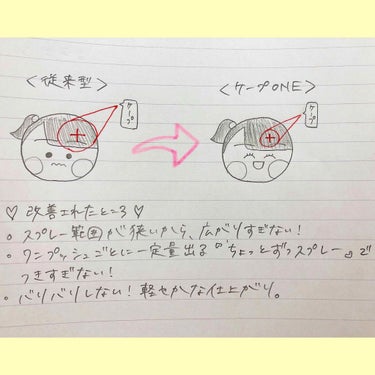 <従来型>
<ケープONE>
ケープ
ケープ
♡ 改善されたところ ♡
○ スプレー範囲が狭いから、広がりすぎない!
○ ワンプッシュごとに一定量出る『ちょっとずつスプレー』で
つきすぎない!
○ バリバリしない!軽やかな仕上がり。